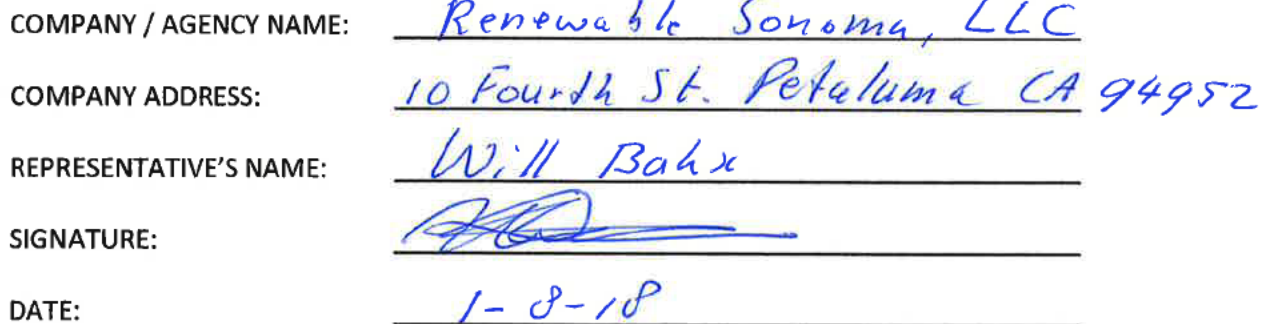 COMPANY / AGENCY NAME: Renewable Sonoma, LLC
COMPANY ADDRESS: 10 Fourth St. Petaluma CA 94952
REPRESENTATIVE'S NAME: Will Bakx
SIGNATURE:
DATE: 1-8-18